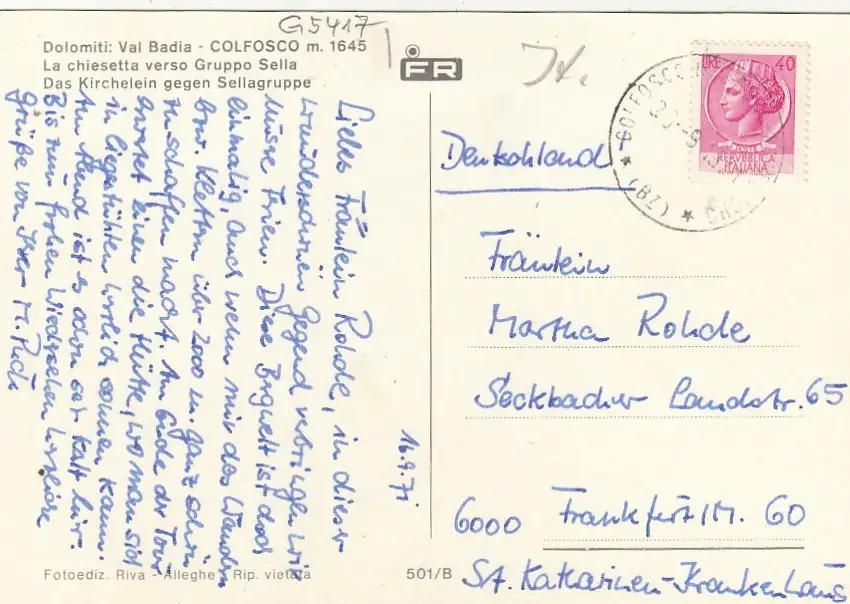 G5417
Dolomiti: Val Badia - COLFOSCO m. 1645
La chiesetta verso Gruppo Sella
Das Kirchelein gegen Sellagruppe
FR
LIRE 40
REPVBBLICA
ITALIANA
COLFOSCO
(BZ)
Deutschland
Fräulein
Martha Rohde
Seckbacher Landstr. 65
6000 Frankfurt/M. 60
St. Katharinen-Krankenhaus
16.9.71
Liebes Fräulein Rohde, in dieser
wunderschönen Gegend verbringen wir
unsere Ferien. Diese Bergwelt ist doch
einmalig, auch wenn mir das Wandern
bzw. Klettern über 2000 m. ganz schön
zu schaffen macht. Am Ende der Tour
wartet einen die Hütte, wo man sich
in Liegestühlen herrlich sonnen kann.
Am Abend ist es schon sehr kalt hier.
Bis zum frohen Wiedersehen herzliche
Grüße von Ihrer M.
Fotoediz. Riva - Alleghe - Rip. vietata
501/B